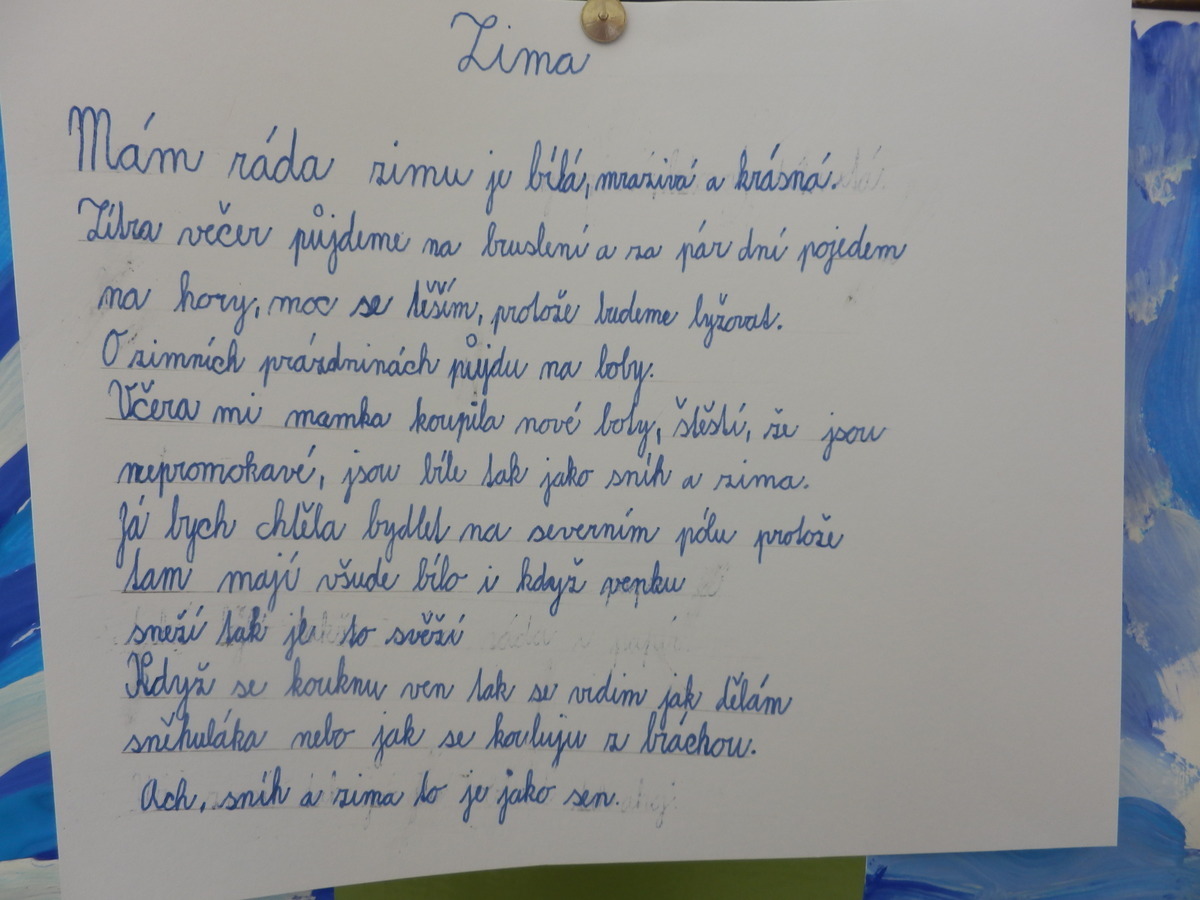 Zima
Mám ráda zimu je bílá, mrazivá a krásná.
Zítra večer půjdeme na bruslení a za pár dní pojedem
na hory, moc se těším, protože budeme lyžovat.
O zimních prázdninách půjdu na boby.
Včera mi mamka koupila nové boty, štěstí, že jsou
nepromokavé, jsou bíle tak jako sníh a zima.
Já bych chtěla bydlet na severním pólu protože
tam mají všude bílo i když venku
sneží tak je to svěží
Když se kouknu ven tak se vidim jak dělám
sněhuláka nebo jak se kouluju z bráchou.
Ach, sníh a zima to je jako sen.